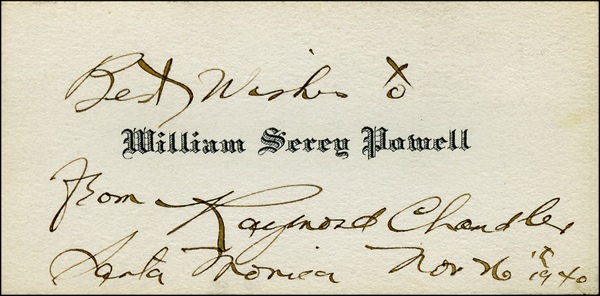 Best Wishes to
William Serey Powell
From Raymond Chandler
Santa Monica Nov 26th 1940